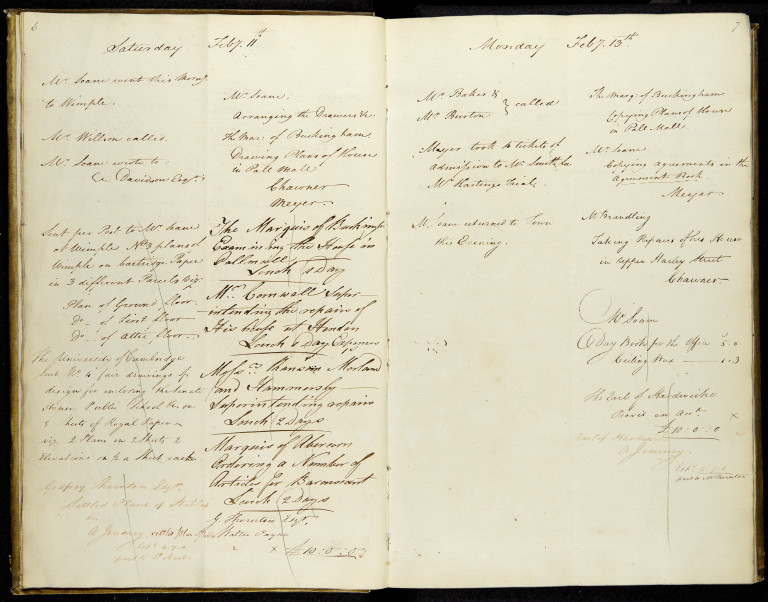 6
Saturday Feby. 11th
Mr. Soane went this Morng.
to Wimple.
Mr. Willson called.
Mr. Soane wrote to
Davidson Esqr.
Sent per Post to Mr. Soane
at Wimple No. 3 plans of
Wimple on Cartridge Paper
in 3 different Parcels Viz.
Plan of Ground Floor
Do. - of First Floor
Do. - of Attic Floor
The University of Cambridge
4 fair drawings of
designs for inclosing the Senate
House Public School &c. on
Sheets of Royal Paper
viz. 2 Plans on 2 Sheets 2
Elevations on ½ a Sheet each
Godfrey Thornton Esqr.
Settled Plans of Stables
&c.
A Journey
Mr. Soane.
Arranging the Drawers &c.
The Mar: of Buckingham
Drawing Plans of House
in Pall Mall
Chawner
Meyer
The Marquis of Buckingm
Examining the House in
Pallmall
1 Day
Mr. Cornwall Super-
intending the repairs of
His house at Hendon
1 Day Expences
Messrs. Ransom Morland
and Hammersly
Superintending repairs
2 Days
Marquis of Abercorn
Ordering a Number of
Articles for Baronscourt
2 Days
G. Thornton Esqr.
x £10:0:0
7
Monday Feby. 13th
Mr. Baker &
Mr. Burton } called
Meyer took 4 tickets of
Admission to Mr. Smith for
Mr. Hastings Trial.
Mr. Soane returned to Town
this Evening.
The Marq: of Buckingham
Copying Plans of House
in Pall Mall
Mr. Soane
Copying agreements in the
Agreement Book
Meyer
Mr Brandling
Taking Repairs of his House
in Upper Harley Street
Chawner
Mr Soane
A Day Book for the Office 5.0
Ceiling Wax 1.3
The Earl of Hardwicke
Recd. on Acct. x
£10:0:0
Earl of Hardwicke
A Journey